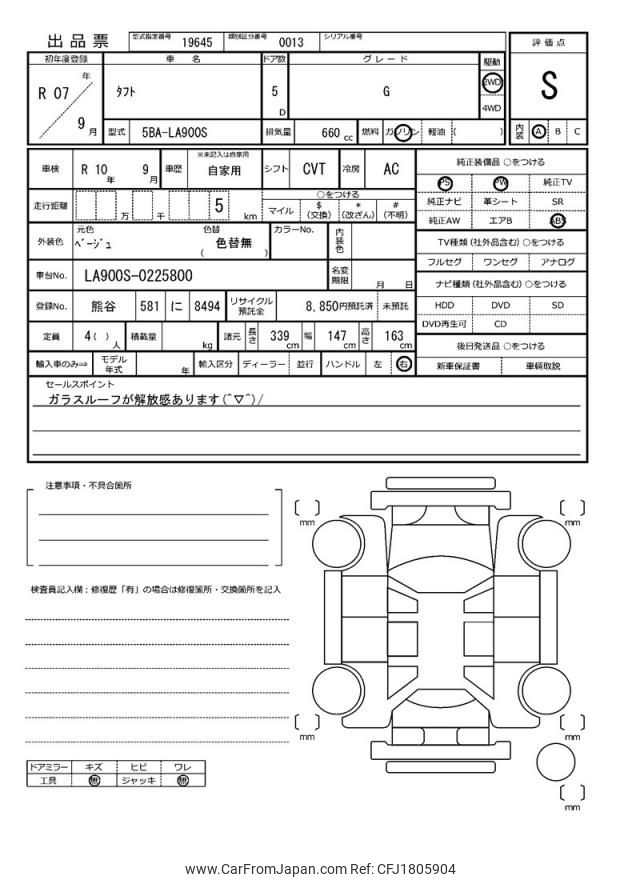 出品票
型式指定番号 19645 類別区分番号 0013 シリアル番号
初年度登録 車名 ドア数 グレード 駆動 評価点
R 07 年 9 月 タフト 5 D G 2WD 4WD S
型式 5BA-LA900S 排気量 660 cc 燃料 ガソリン 軽油 ( ) 内装 A B C
車検 R 10 年 9 月 車歴 ※未記入は自家用 自家用 シフト CVT 冷房 AC
純正装備品 ○をつける
PS PW 純正TV
純正ナビ 革シート SR
純正AW エアB ABS
走行距離 万 千 5 km ○をつける
マイル $ (交換) * (改ざん) # (不明)
外装色 元色 ベージュ 色替 色替無 ( ) カラーNo. 内装色
TV種類 (社外品含む) ○をつける
フルセグ ワンセグ アナログ
車台No. LA900S-0225800 名変期限 月 日
ナビ種類 (社外品含む) ○をつける
登録No. 熊谷 581 に 8494 リサイクル預託金 8,850円預託済 未預託
HDD DVD SD
DVD再生可 CD
定員 4( ) 人 積載量 kg 諸元 長さ 339 cm 幅 147 cm 高さ 163 cm
後日発送品 ○をつける
輸入車のみ⇒ モデル年式 年 輸入区分 ディーラー 並行 ハンドル 左 右
新車保証書 車輌取説
セールスポイント
ガラスルーフが解放感あります(^▽^)/
注意事項・不具合箇所
検査員記入欄:修復歴「有」の場合は修復箇所・交換箇所を記入
mm
mm
mm
mm
mm
ドアミラー キズ ヒビ ワレ
工具 無 ジャッキ 無
www.CarFromJapan.com Ref: CFJ1805904